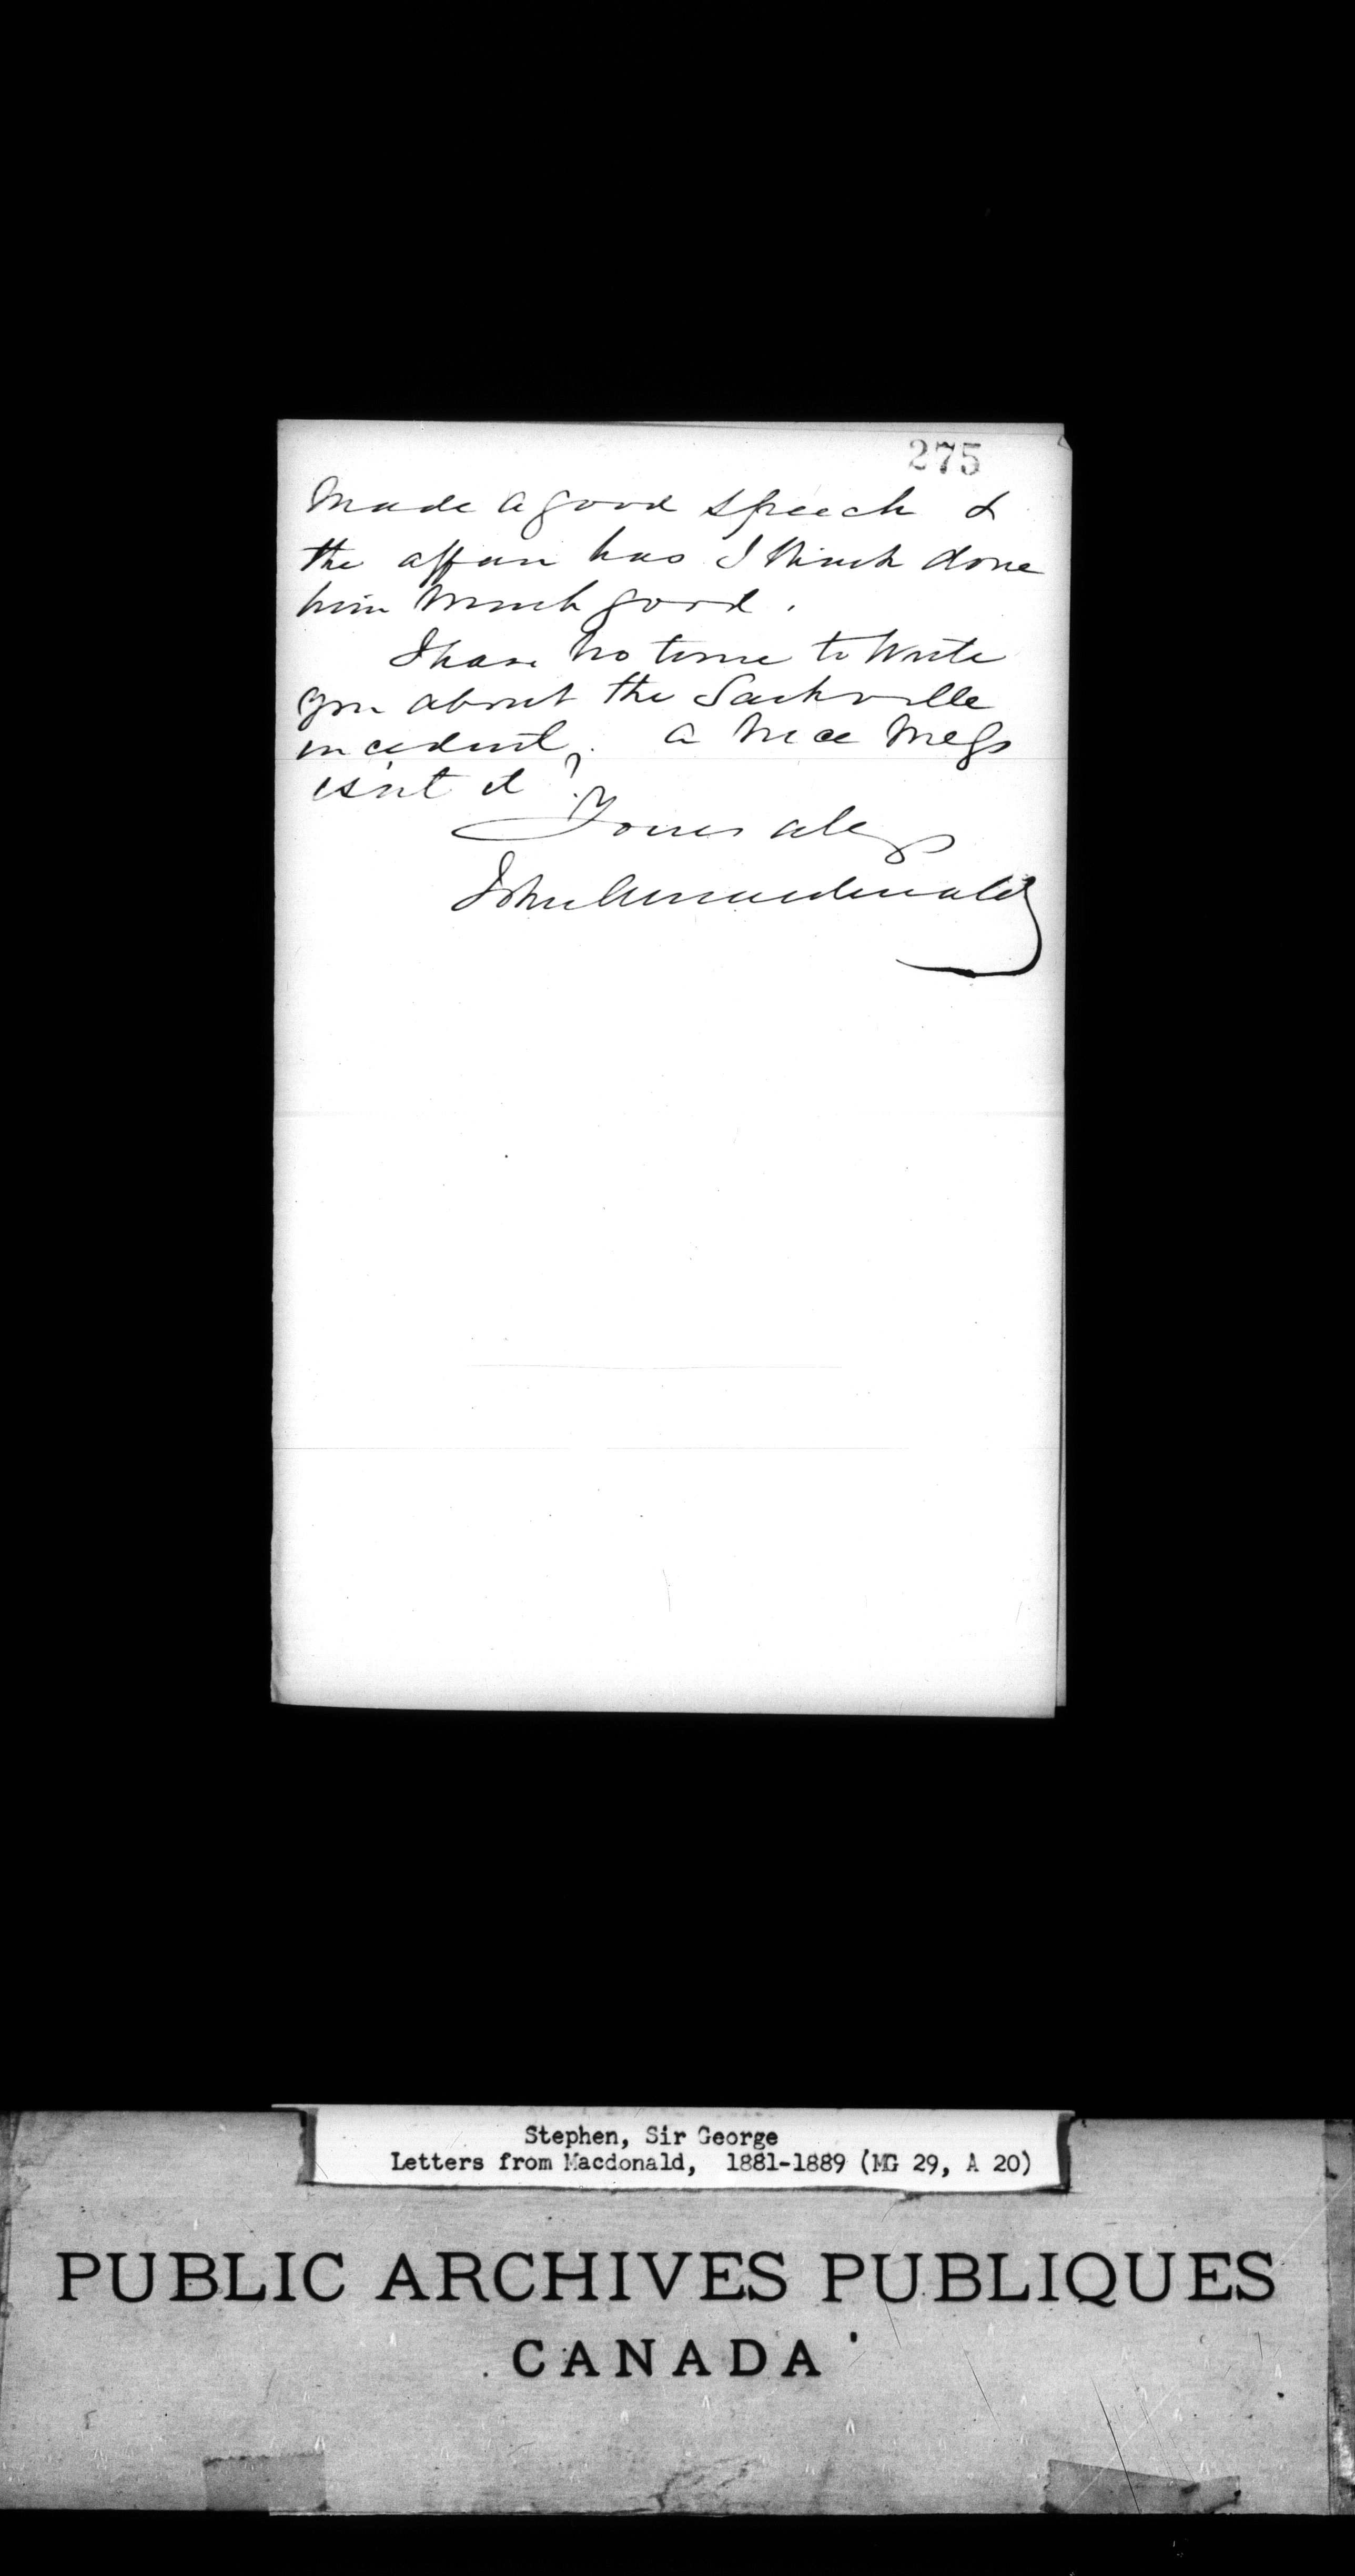 275
Made a good speech &
the affair has I think done
him much good.
I have no time to write
you about the Sackville
incident. A nice mess
isn't it?
Yours alys
John A Macdonald
Stephen, Sir George
Letters from Macdonald, 1881-1889 (MG 29, A 20)
PUBLIC ARCHIVES PUBLIQUES
CANADA